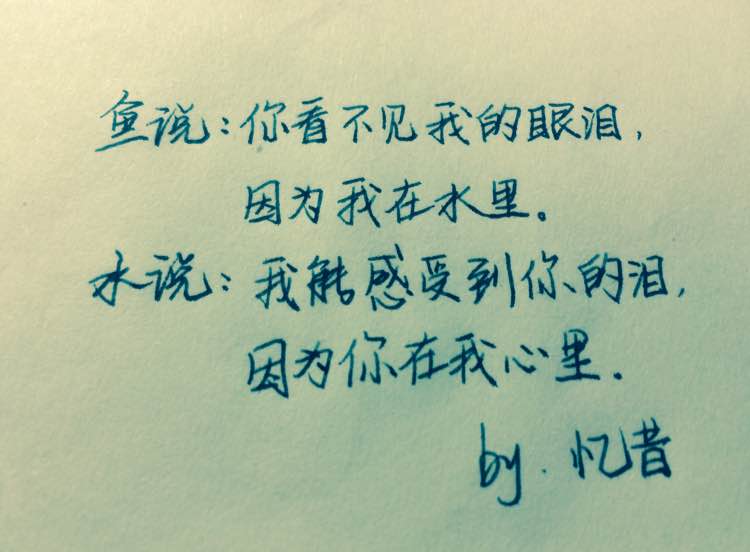 鱼说：你看不见我的眼泪，
因为我在水里。
水说：我能感受到你的泪，
因为你在我心里．
by. 忆昔